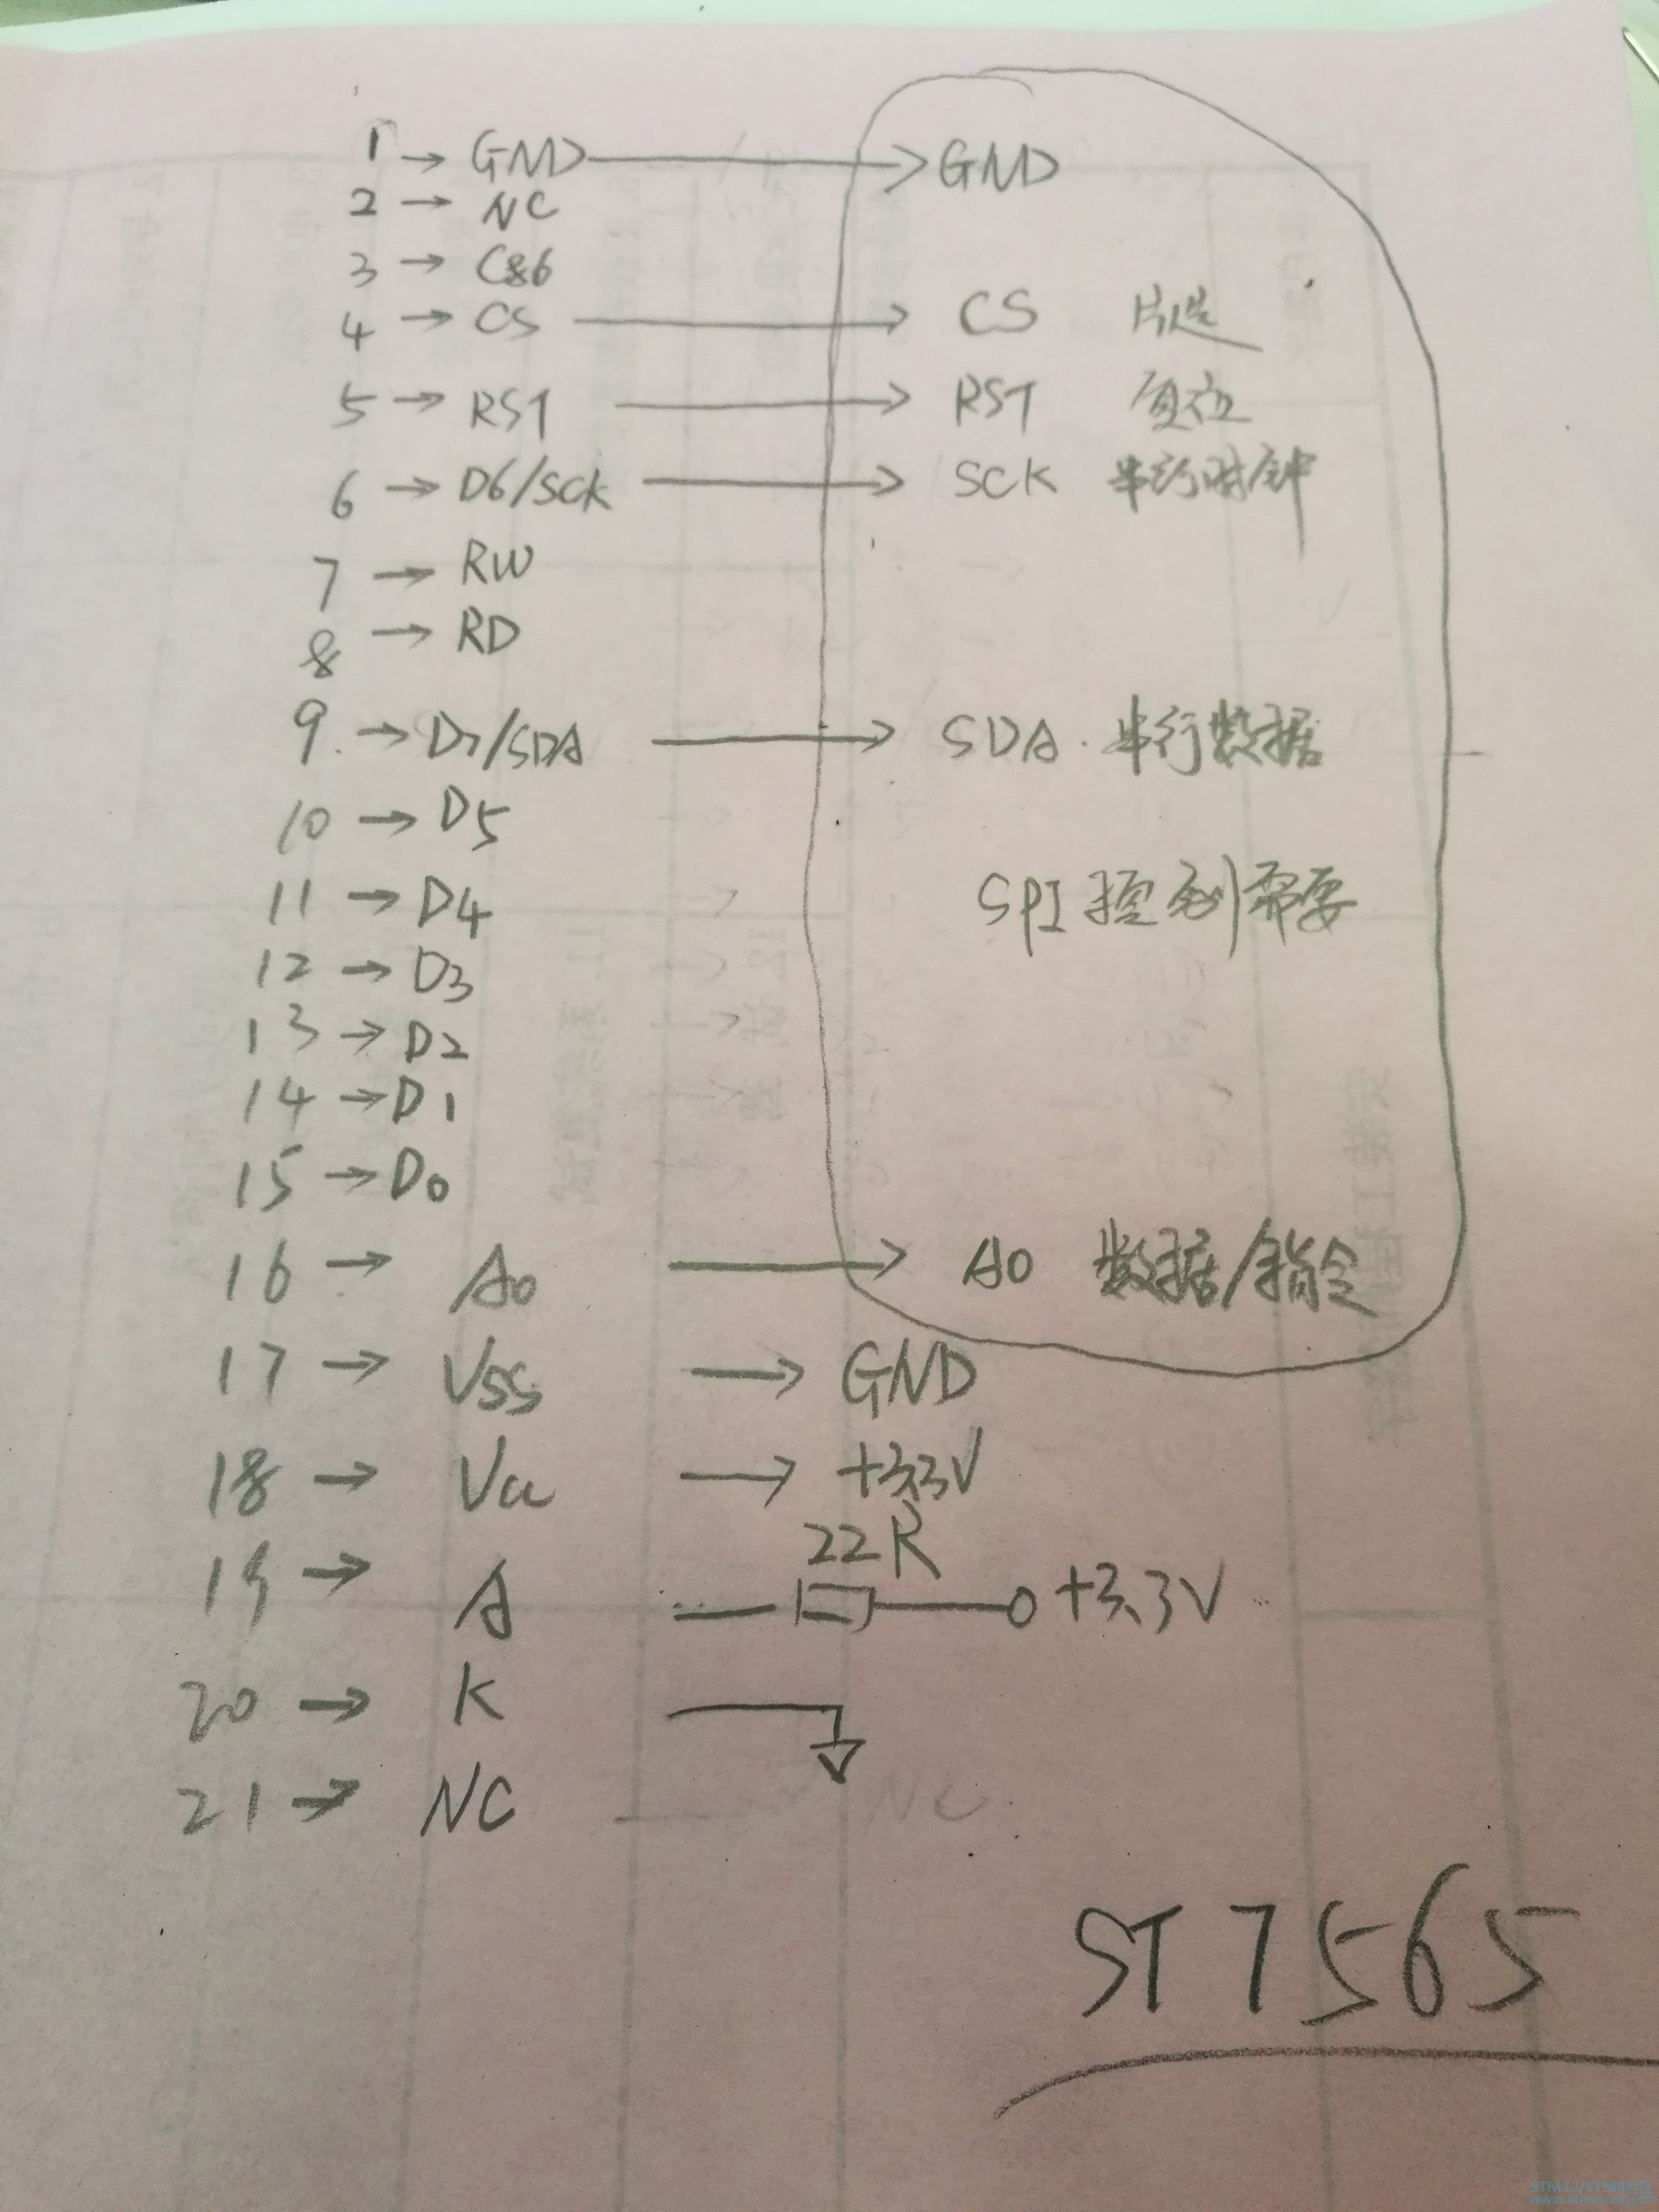 1 → GND → GND
2 → NC
3 → C86
4 → CS → CS 片选
5 → RST → RST 复位
6 → D6/SCK → SCK 串行时钟
7 → RW
8 → RD
9 → D7/SDA → SDA 串行数据
10 → D5
11 → D4 SPI 控制需要
12 → D3
13 → D2
14 → D1
15 → D0
16 → A0 → A0 数据/指令
17 → VSS → GND
18 → Vcc → +3.3V
22R
19 → A +3.3V
20 → K
21 → NC NC
ST7565
STM32/STM8社区
www.stmcu.org.cn